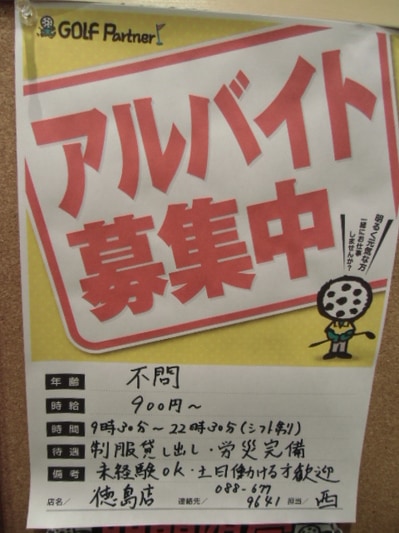 GOLF Partner
アルバイト
募集中
明るく元気な方
一緒にお仕事
しませんか?
年齢 不問
時給 900円～
時間 9時30分～22時30分(シフト制)
待遇 制服貸し出し・労災完備
備考 未経験OK・土日働ける方歓迎
店名/徳島店 連絡先/088-677-9641 担当/西